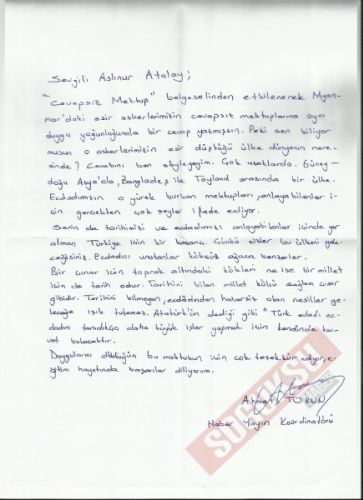 Sevgili Aslınur Atalay;
"Cevapsız Mektup" belgeselinden etkilenerek Myan-
mar'daki esir askerlerimizin cevapsız mektuplarına aynı
duygu yoğunluğunda bir cevap yazmışsın. Peki sen biliyor
musun o askerlerimizin esir düştüğü ülke dünyanın nere-
sinde? Cevabını ben söyleyeyim. Çok uzaklarda. Güney-
doğu Asya'da, Bangladeş ile Tayland arasında bir ülke.
Ecdadımızın o yürek burkan mektupları, anlayabilenler i-
çin gerçekten çok şeyler ifade ediyor.
Senin de tarihimizi ve ecdadımızı anlayabilenler içinde yer
alman Türkiye için bir kazanç. Çünkü sizler bu ülkeni gele-
ceğisiniz. Ecdadını unutanlar köksüz ağaca benzerler.
Bir çınar için toprak altındaki kökleri ne ise bir millet
için de tarih odur. Tarihini bilen millet kökü sağlam çınar
gibidir. Tarihini bilmeyen, ecdadından habersiz olan nesiller ge-
leceğe ışık tutamaz. Atatürk'ün dediği gibi "Türk evladı ec-
dadını tanıdıkça daha büyük işler yapmak için kendinde kuv-
vet bulacaktır.
Duygularını döktüğün bu mektubun için çok teşekkür ediyor, e-
ğitim hayatında başarılar diliyorum.
Ahmet TURUN
Haber Yayın Koordinatörü